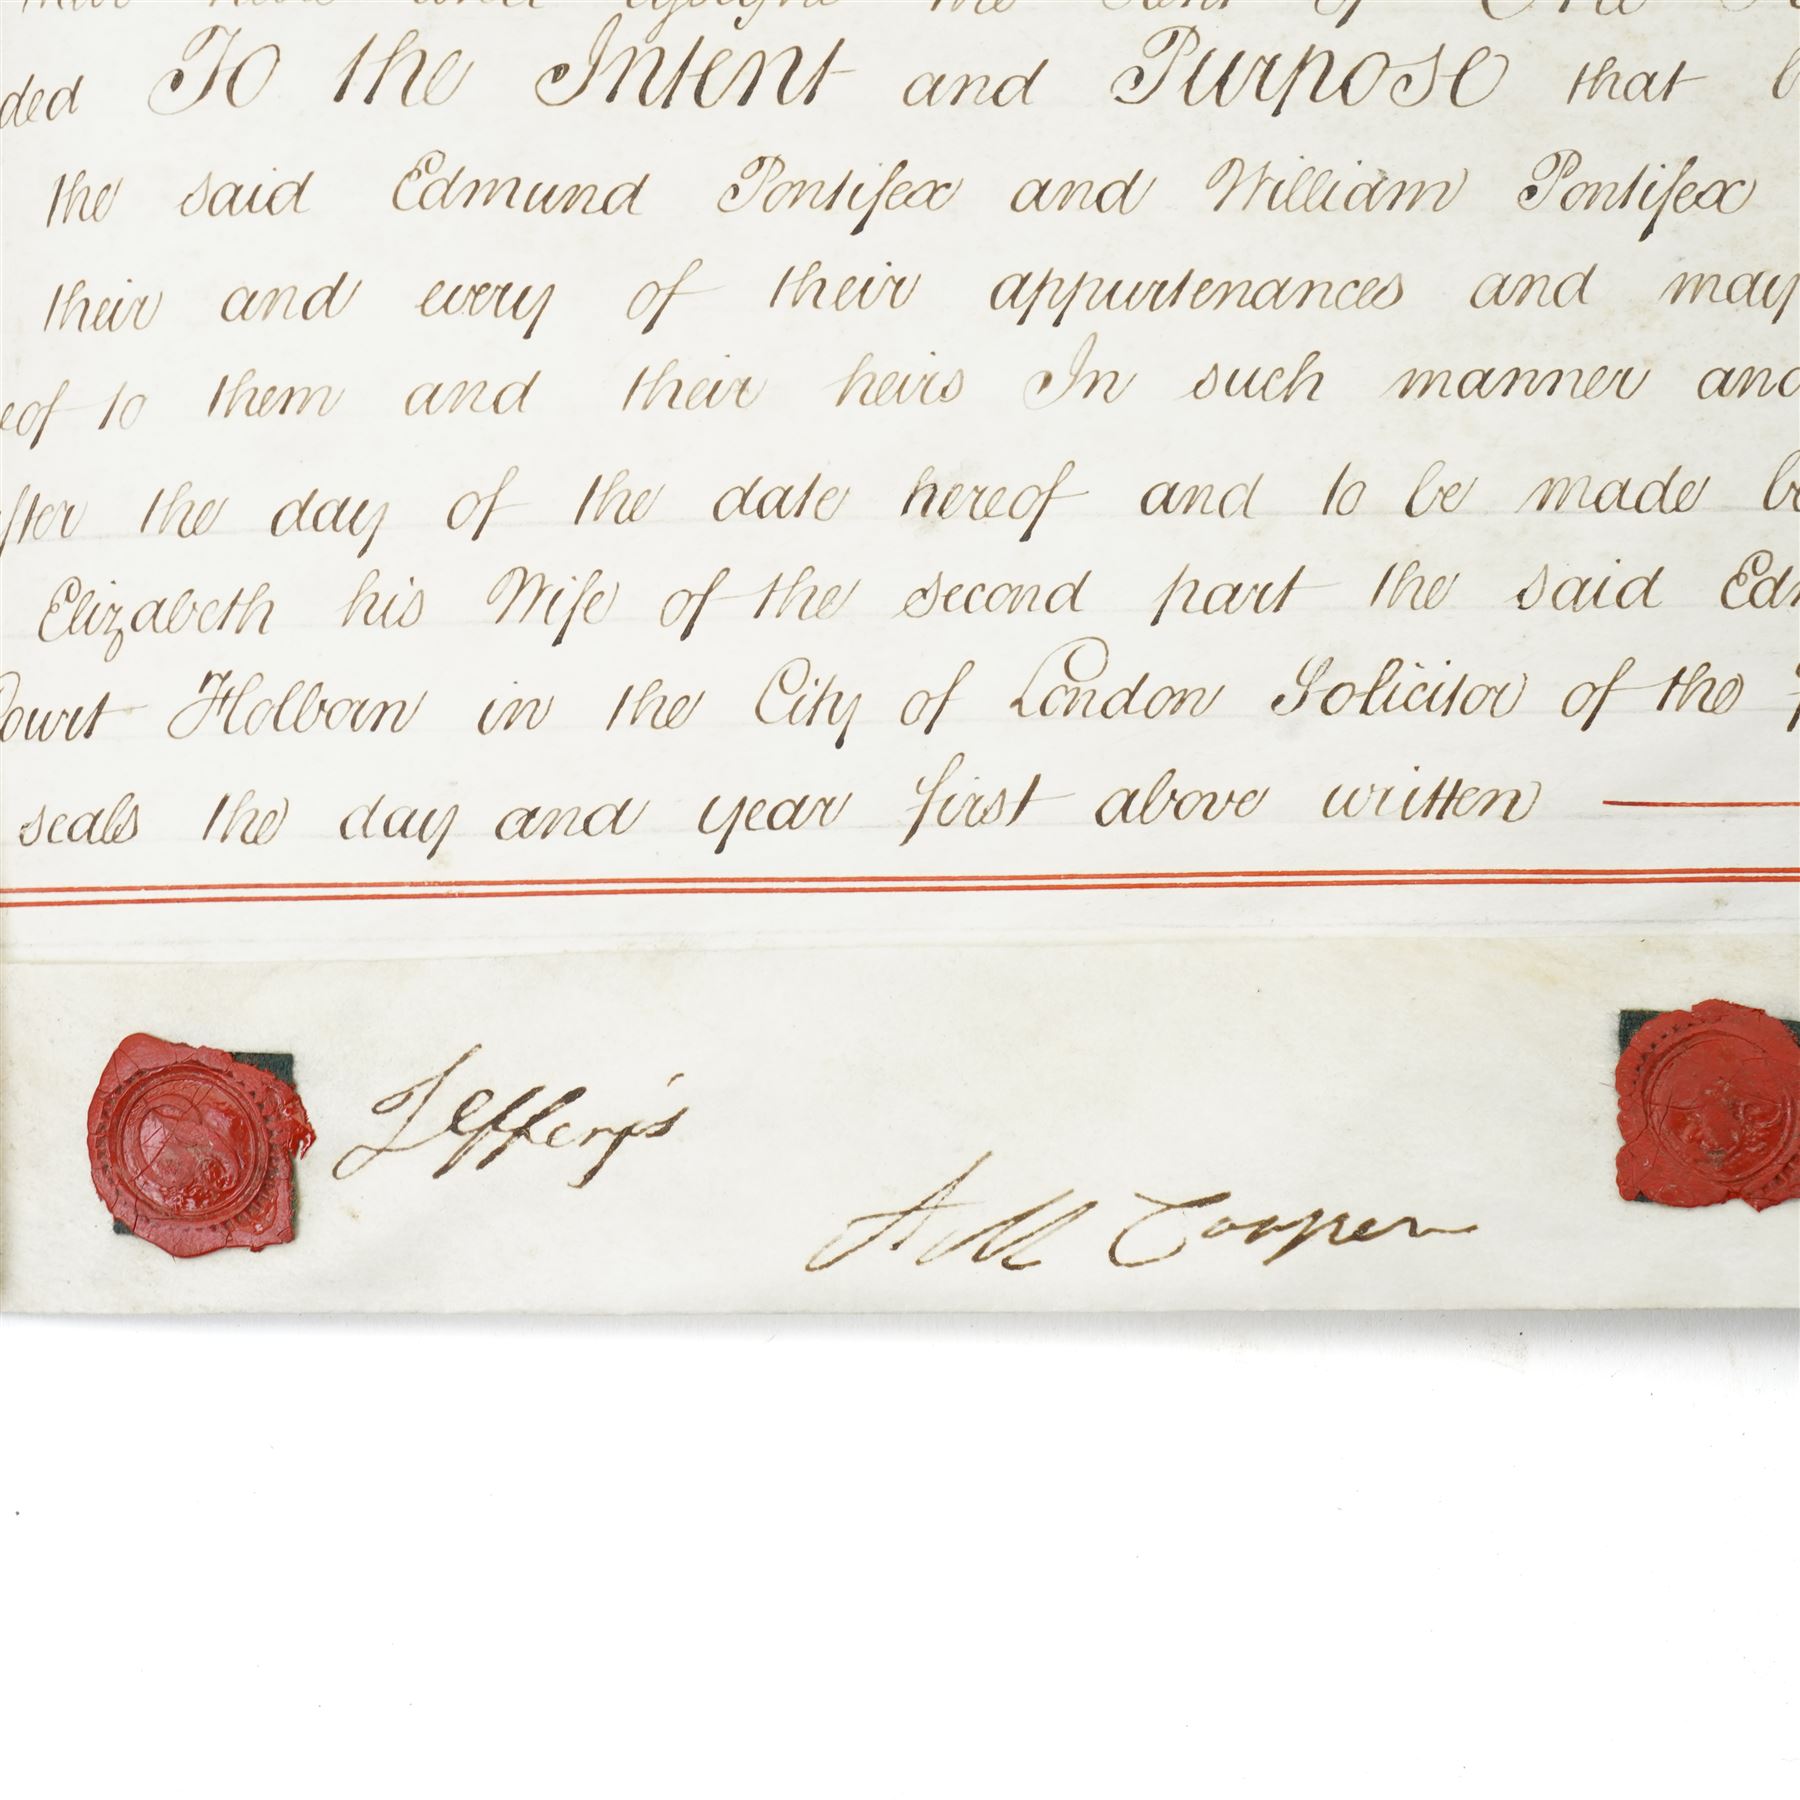 the Rent of One
ded To the Intent and Purpose that
the said Edmund Pontifex and William Pontifex
their and every of their appurtenances and may
eof to them and their heirs In such manner and
after the day of the date hereof and to be made
Elizabeth his Wife of the second part the said Edm
Court Holborn in the City of London Solicitor of the
seals the day and year first above written
Jefferys
A M Cooper